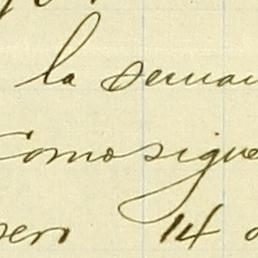 la seman
como sigue
ero 14 d